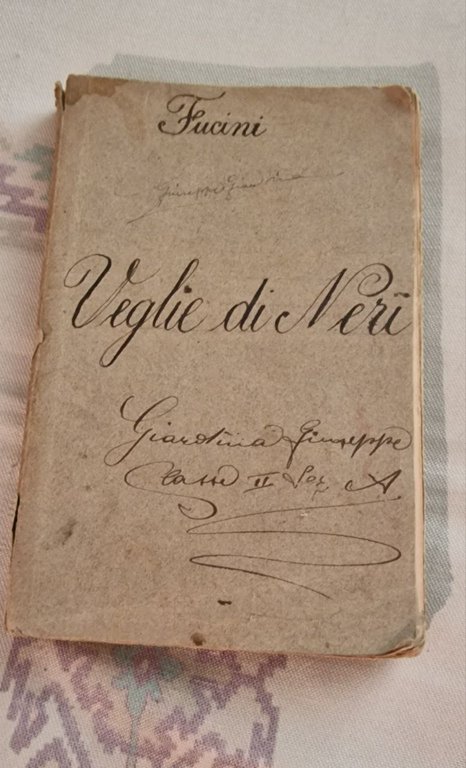 Fucini
Giuseppe Giardina
Veglie di Neri
Giardina Giuseppe
Classe II Sez A